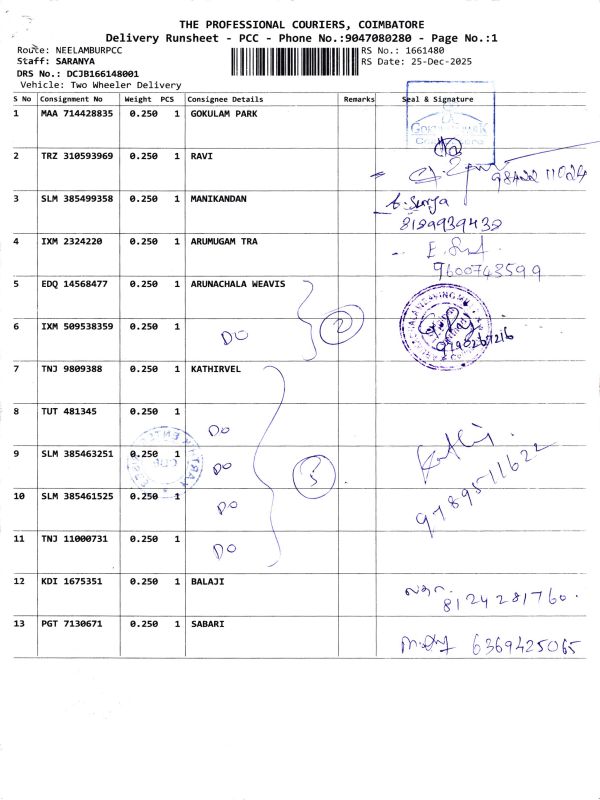 THE PROFESSIONAL COURIERS, COIMBATORE
Delivery Runsheet - PCC - Phone No.:9047080280 - Page No.:1
Route: NEELAMBURPCC
RS No.: 1661480
Staff: SARANYA
RS Date: 25-Dec-2025
DRS No.: DCJB166148001
Vehicle: Two Wheeler Delivery
S No Consignment No Weight PCS Consignee Details Remarks Seal & Signature
1 MAA 714428835 0.250 1 GOKULAM PARK
2 TRZ 310593969 0.250 1 RAVI
3 SLM 385499358 0.250 1 MANIKANDAN
Surya
8189939438
4 IXM 2324220 0.250 1 ARUMUGAM TRA
9600743599
5 EDQ 14568477 0.250 1 ARUNACHALA WEAVIS
2
6 IXM 509538359 0.250 1 DO
7 TNJ 9809388 0.250 1 KATHIRVEL
8 TUT 481345 0.250 1 DO
9 SLM 385463251 0.250 1 DO
5
9789511622
10 SLM 385461525 0.250 1 DO
11 TNJ 11000731 0.250 1 DO
12 KDI 1675351 0.250 1 BALAJI
8124281760.
13 PGT 7130671 0.250 1 SABARI
6369425065